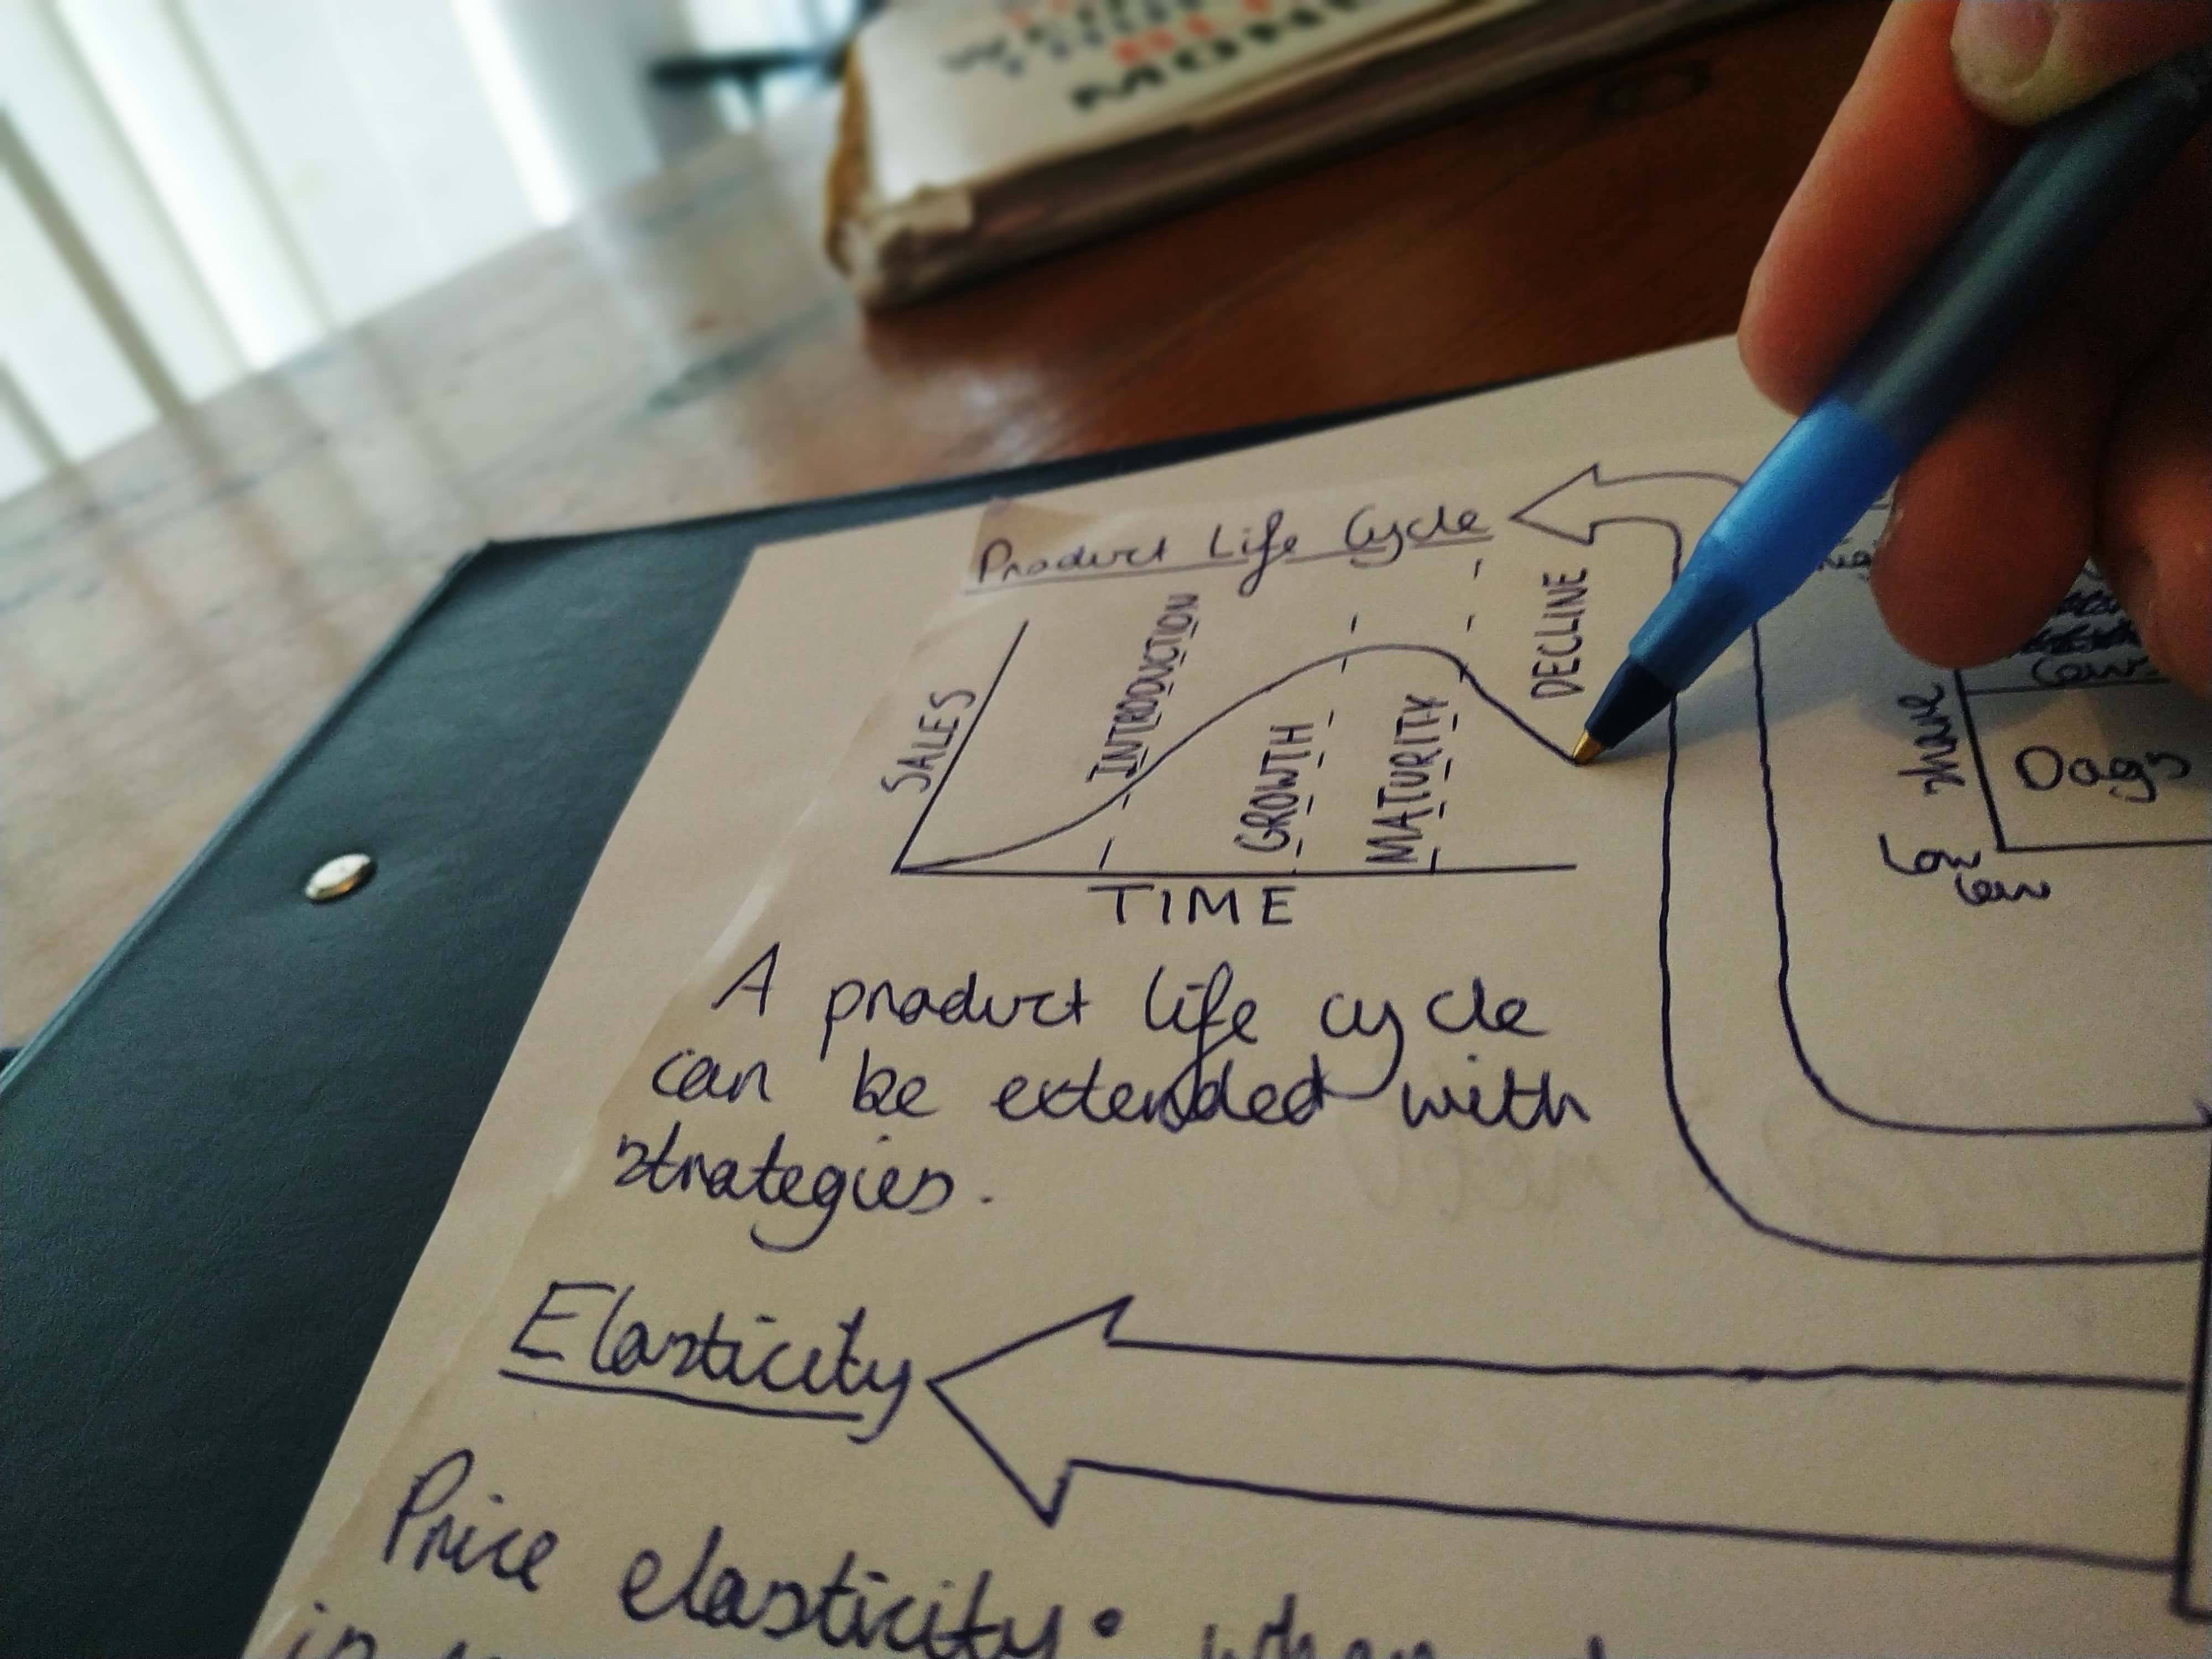 MONEY
Product Life Cycle
SALES
INTRODUCTION
GROWTH
MATURITY
DECLINE
TIME
A product life cycle
can be extended with
strategies.
share
Dogs
Low
Low
Elasticity
Price elasticity: when